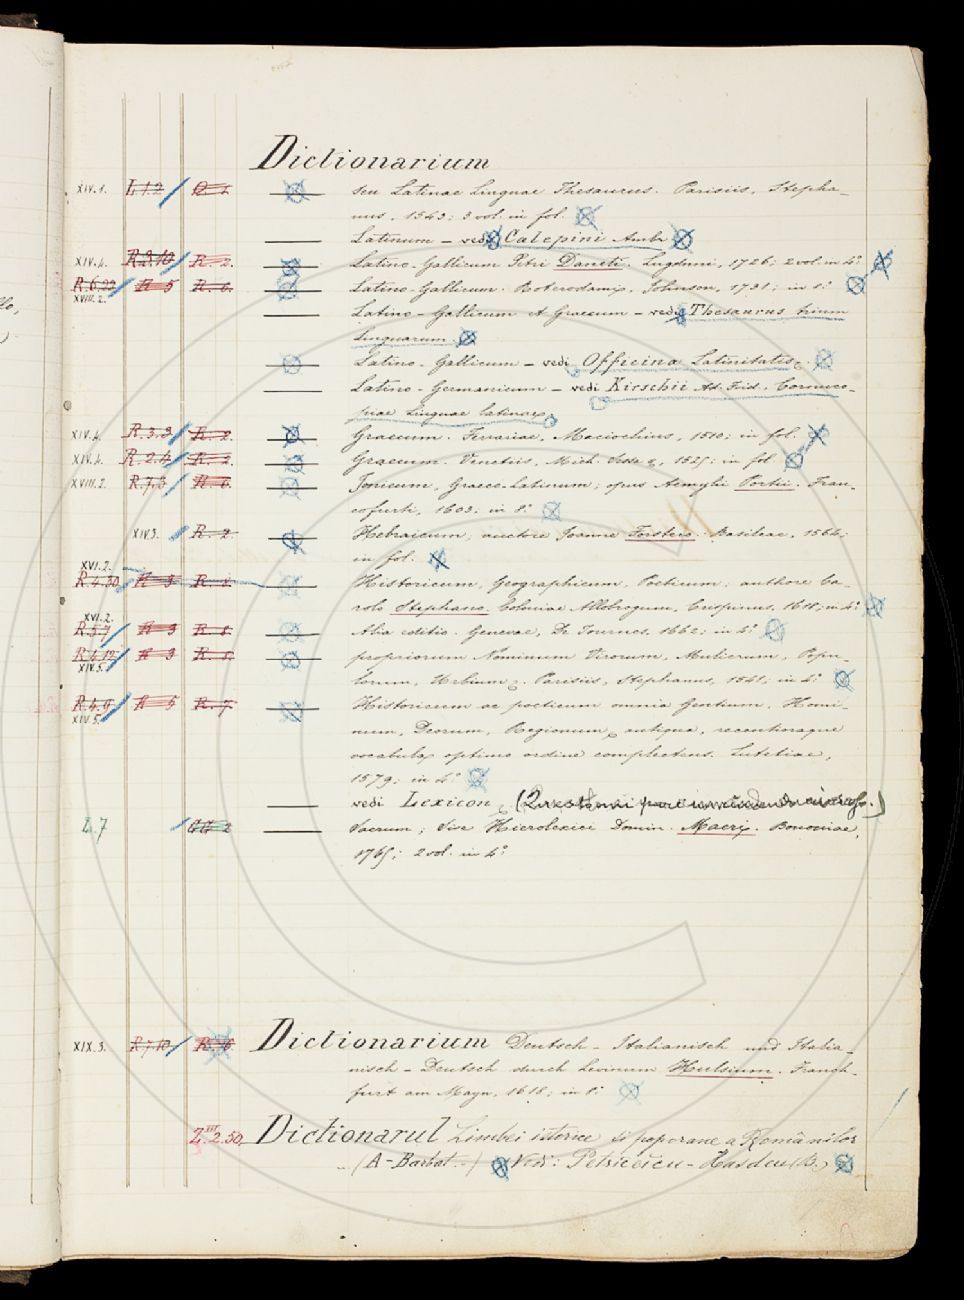 Dictionarium
XIV.1. L.1.2 — seu Latinae Linguae Thesaurus. Parisiis, Stepha-
nus, 1543; 3 vol. in fol.
— Latinum – vedi Calepini Ambr
XIV.4. R. 2. — Latino-Gallicum Petri Daneti. Lugduni, 1726; 2 vol. in 4°
R.6.22 R. 6. — Latino-Gallicum. Roterodami, Johnson, 1731; in 8°
XVIII.2.
— Latino-Gallicum et Graecum – vedi Thesaurus trium
linguarum.
— Latino-Gallicum – vedi Officina Latinitatis
— Latino-Germanicum – vedi Kirschii Ad. Frid. Cornuco-
piae linguae latinae
XIV.4. R.3.3 R. 2 — Graecum. Ferrariae, Maciochius, 1510; in fol.
XIV.4. R.2.4 R. 2. — Graecum. Venetiis, Mich. 1525; in fol
XVIII.2. R.7.3 R. 6. — Jonicum, Graeco-latinum; opus Aemylii Porti. Fran-
cofurti, 1603; in 8°
XIV.3. R. 2 — Hebraicum, auctore Joanne Forstero. Basileae, 1564;
in fol.
XVI.2.
R.4.30 — Historicum, Geographicum, Poeticum, authore Ca-
rolo Stephano. Coloniae Allobrogum, Crispinus, 1618; in 4°
XVI.2.
R.5.7 — Alia editio. Genevae, De Tournes, 1662; in 4°
R.4.12 — propriorum Nominum Virorum, Mulierum, Popu-
XIV.5.
lorum, Urbium. Parisiis, Stephanus, 1541; in 4°
R.4.9 R. 7 — Historicum ac poeticum omnia Gentium, Homi-
XIV.5.
num, Deorum, Regionum, antiqua, recentioraque
vocabula optimo ordine complectens. Lutetiae,
1579; in 4°
— vedi Lexicon
L.7 — Sacrum; sive Hierolexici Domin. Macri. Bononiae,
1765; 2 vol. in 4°
XIX.3. R.7.10 R. 6 Dictionarium Deutsch – Italianisch und Italia-
nisch – Deutsch durch Levinum Hulsium. Franck-
furt am Mayn, 1618; in 8°
Z.III.2.50. Dictionarul Limbei istorice si poporane a Românilor
(A-Barbat..) Vedi: Petriceicu-Hasdeu (B.)